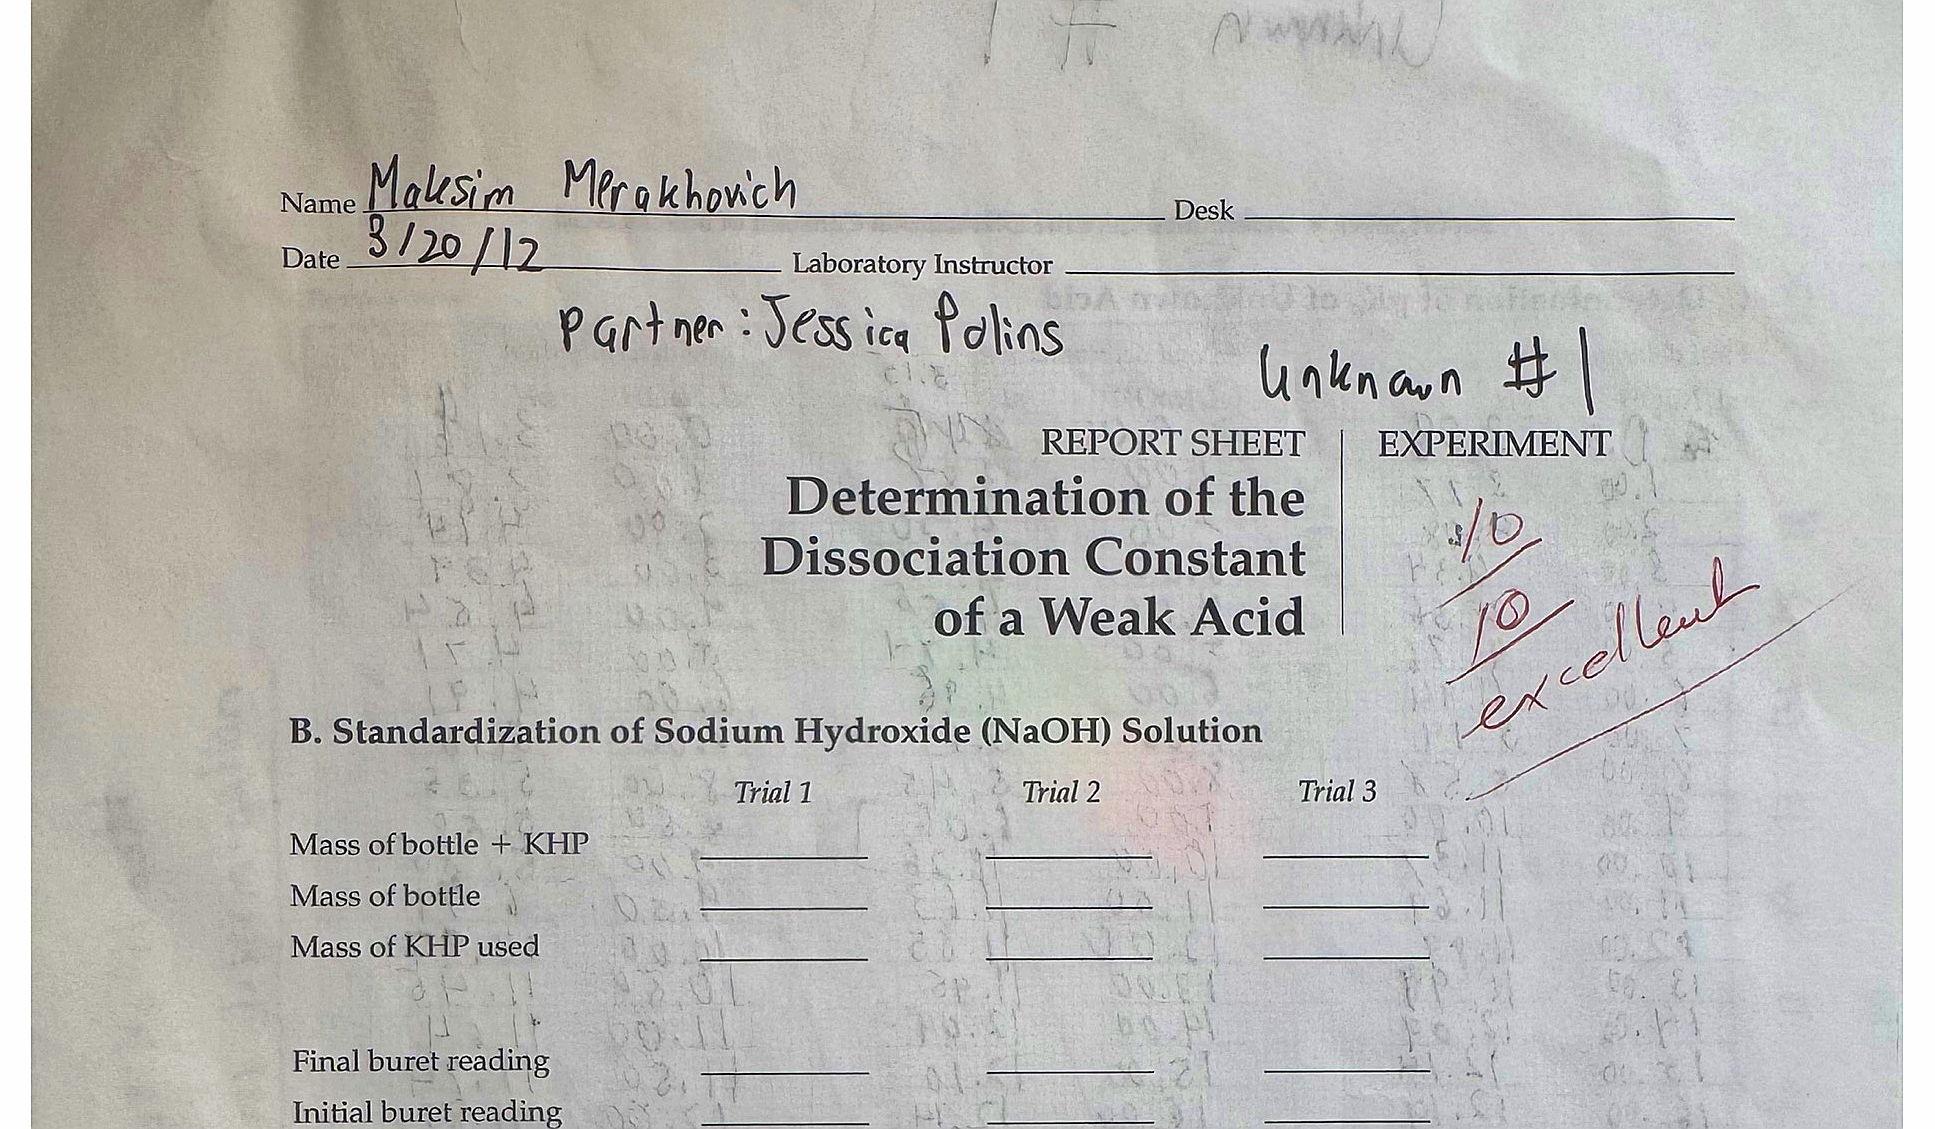 Name Maksim Merakhovich Desk
Date 3/20/12 Laboratory Instructor
Partner: Jessica Polins
Unknown #1
REPORT SHEET EXPERIMENT
Determination of the
Dissociation Constant
of a Weak Acid
10
10
excellent
B. Standardization of Sodium Hydroxide (NaOH) Solution
Trial 1 Trial 2 Trial 3
Mass of bottle + KHP
Mass of bottle
Mass of KHP used
Final buret reading
Initial buret reading